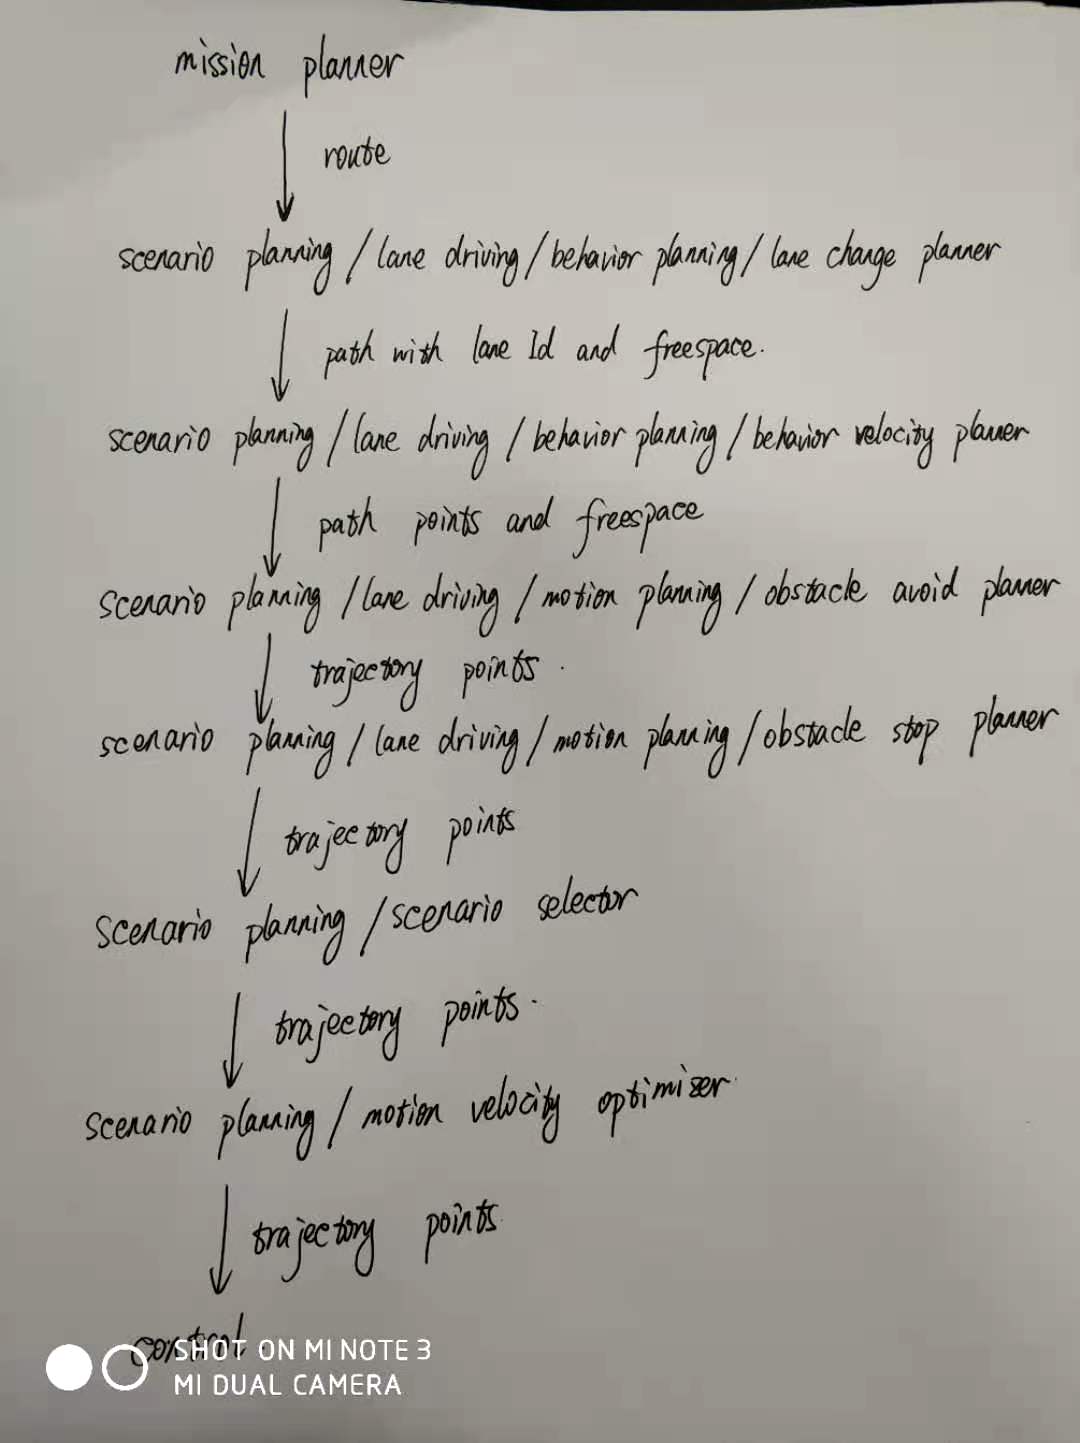 mission planner
route
scenario planning / lane driving / behavior planning / lane change planner
path with lane Id and freespace.
scenario planning / lane driving / behavior planning / behavior velocity planner
path points and freespace
scenario planning / lane driving / motion planning / obstacle avoid planner
trajectory points.
scenario planning / lane driving / motion planning / obstacle stop planner
trajectory points
scenario planning / scenario selector
trajectory points.
scenario planning / motion velocity optimizer.
trajectory points.
control.
SHOT ON MI NOTE 3
MI DUAL CAMERA